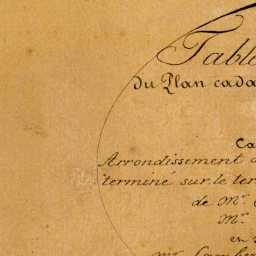 Table
du Plan cada
Ca
Arrondissement d
terminé sur le ter
de Mr
Mr
en
Mr